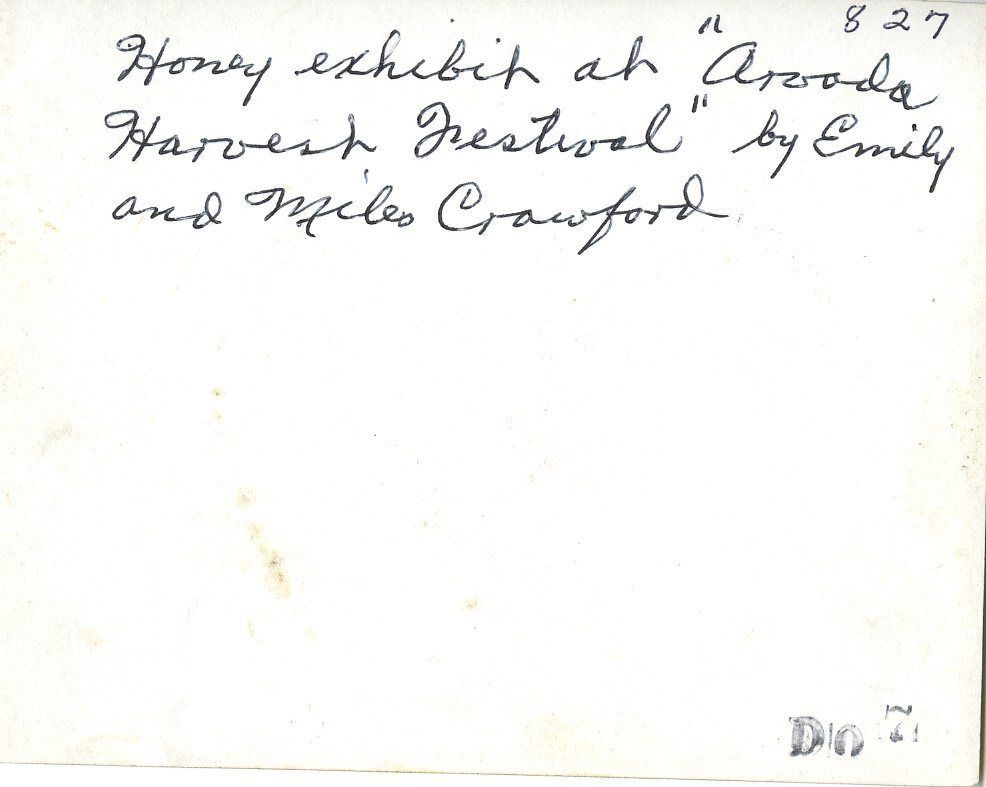 827
Honey exhibit at "Arvada
Harvest Festival" by Emily
and Miles Crawford
7